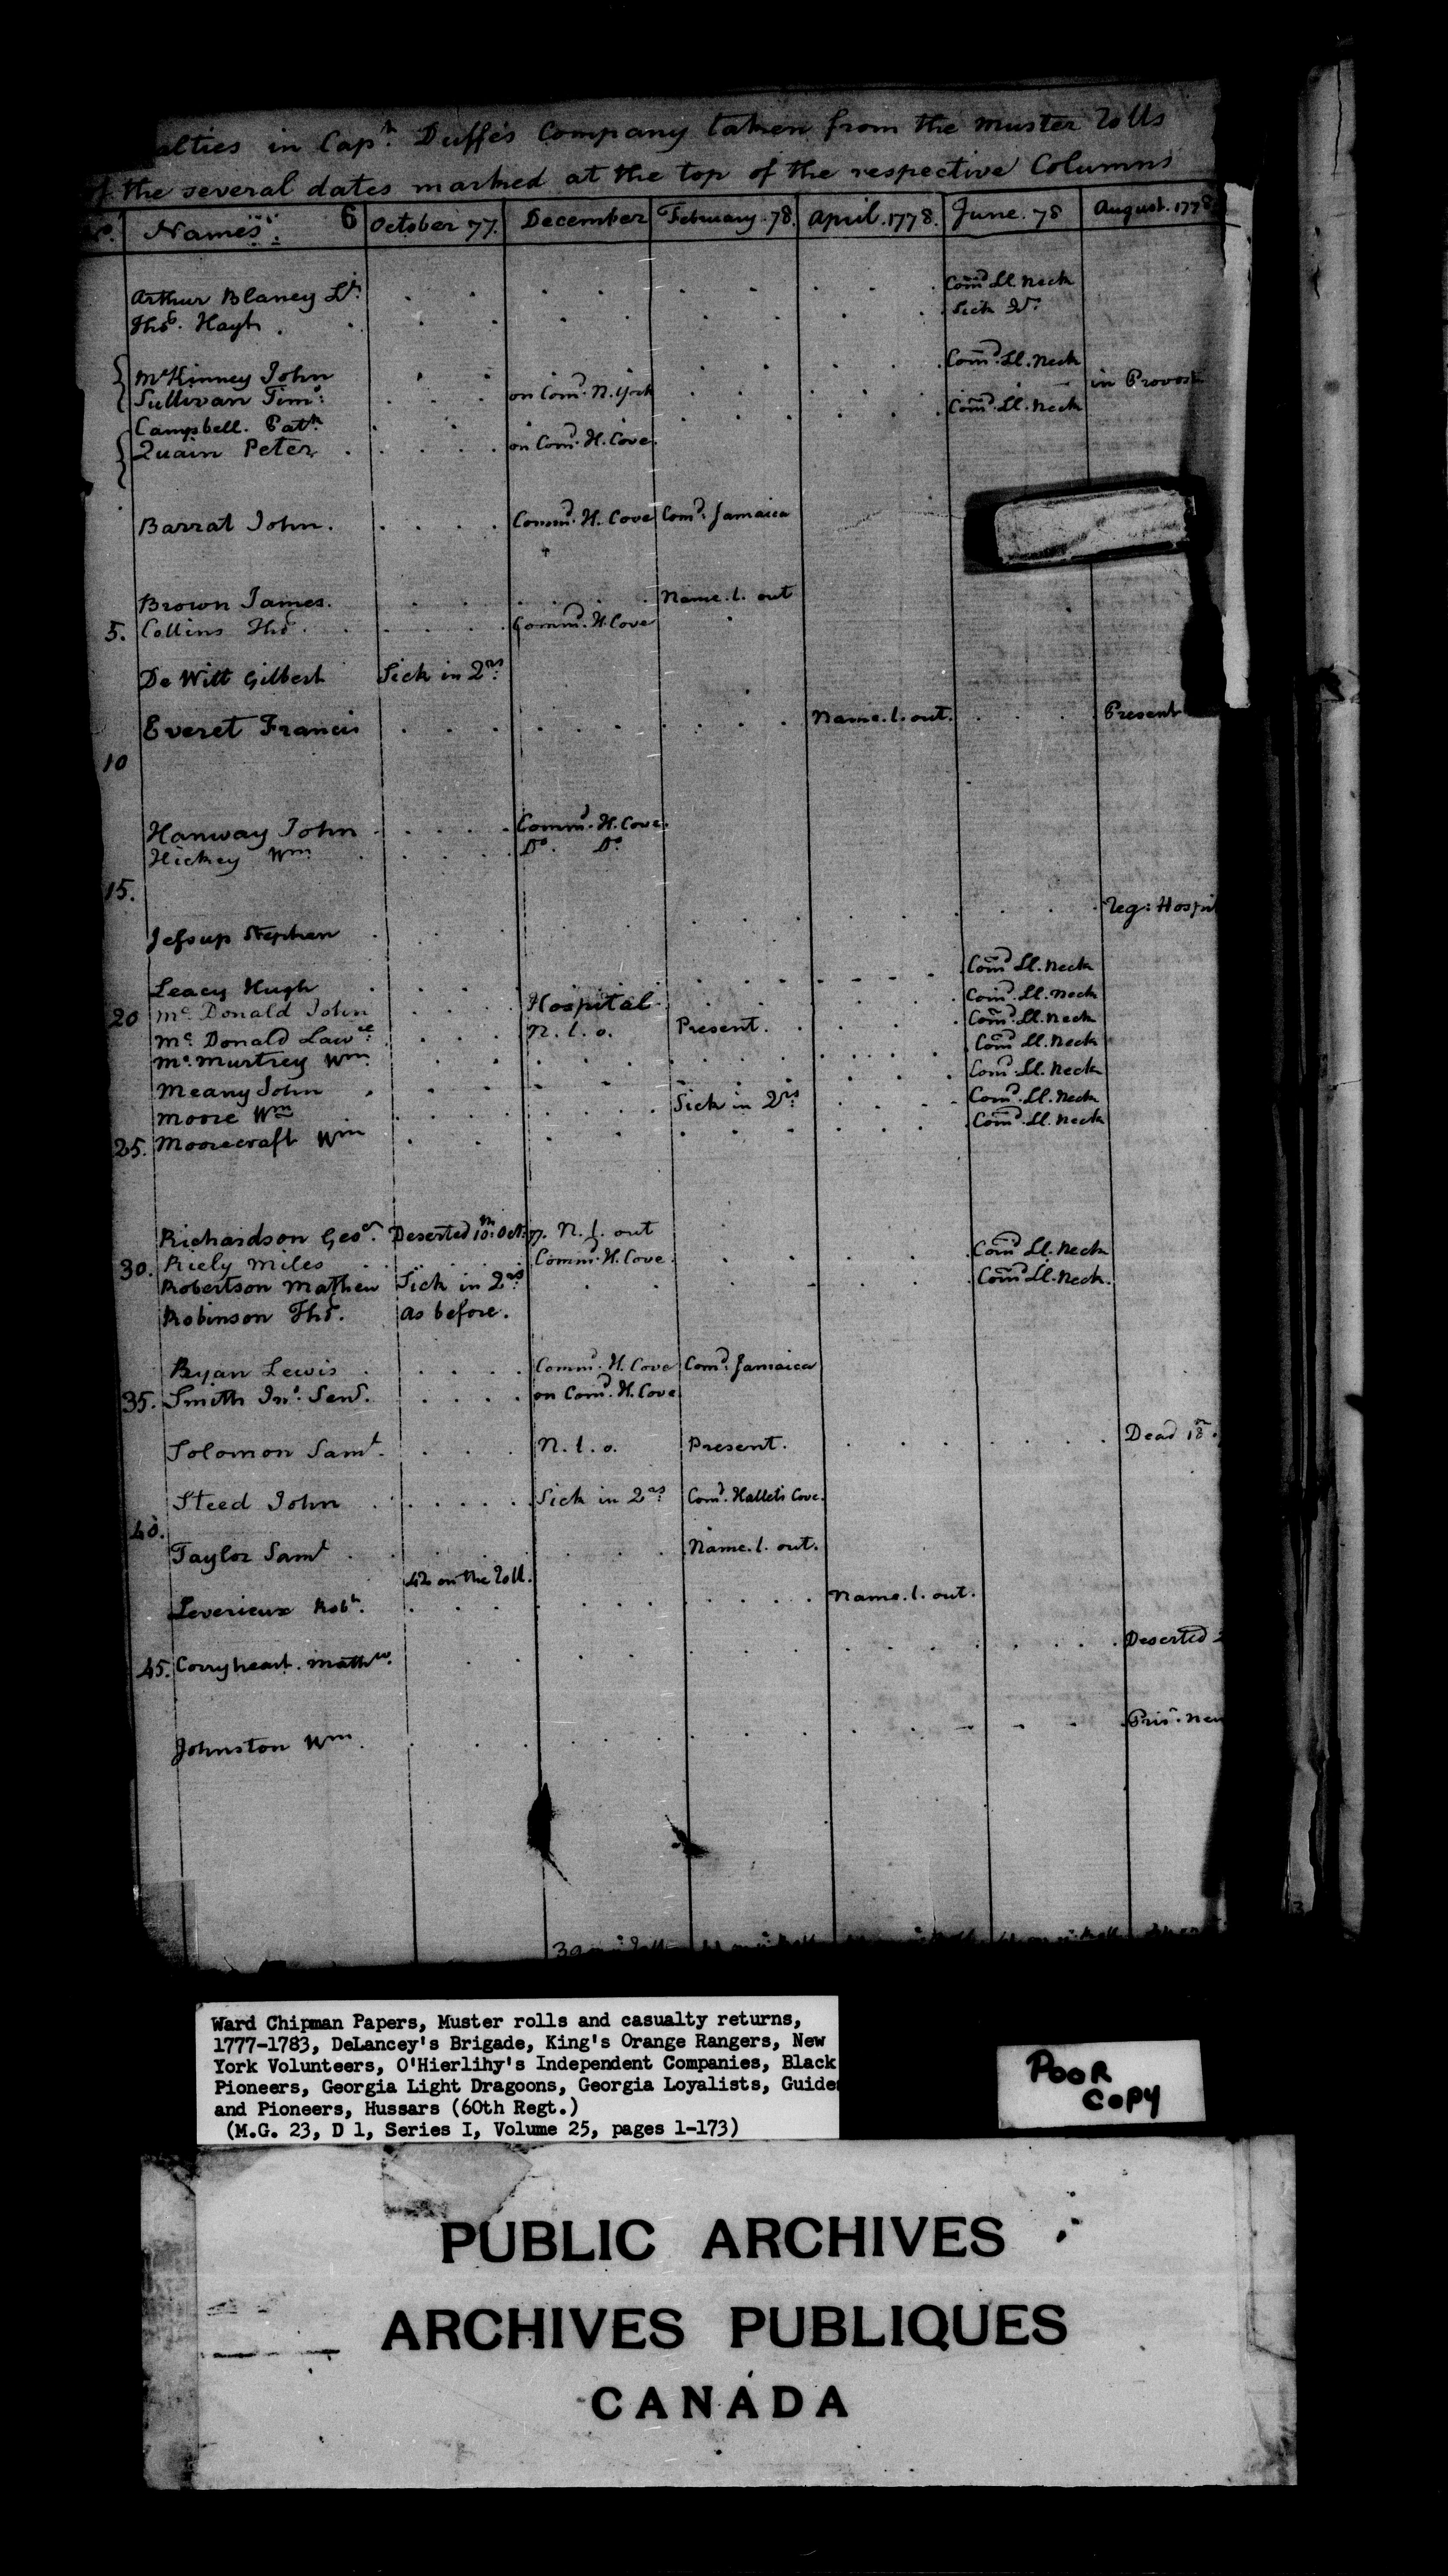 alties in Capt. Duffe's Company taken from the muster Rolls
of the several dates marked at the top of the respective Columns
No. Names. 6 October 77. December February. 78. April. 1778. June. 78 August. 1778
Arthur Blaney Lt. Comd Ll. Neck
Thos. Hayt. Sick Do.
McKinney John Comd. Ll. Neck
Sullivan Timo: on Comd. N. York in Provost
Campbell. Patk Comd. Ll. Neck
Quain Peter on Comd. H. Cove
Barrat John. Commd. H. Cove Comd. Jamaica
Brown James. Name. l. out
5. Collins Thos. Commd. H. Cove
De Witt Gilbert Sick in Qrs.
Everet Francis Name. l. out. Present
10
Hanway John Commd. H. Cove.
Hickey Wm. Do. Do.
15.
Jessup Stephen Reg: Hospit
Leacy Hugh Comd Ll. Neck
20 Mc Donald John Hospital Comd. Ll. Neck
Mc Donald Lawce. N. l. o. Present. Comd. Ll. Neck
Mc. Murtrey Wm. Comd Ll. Neck
Meany John Comd. Ll. Neck
Moore Wm Sick in Qrs. Comd. Ll. Neck
25. Moorecraft Wm Comd. Ll. Neck
Richardson Geoe. Deserted 10th. Oct. 77. N. l. out
30. Riely Miles Commd. H. Cove. Comd Ll. Neck
Robertson Mathew Sick in Qrs. Comd Ll. Neck.
Robinson Thos. As before.
Ryan Lewis Commd. H. Cove Comd. Jamaica
35. Smith Jno. Senr. on Comd. H. Cove
Solomon Saml. N. l. o. Present. Dead 18
Steed John Sick in Qrs. Comd. Hallets Cove.
40.
Taylor Saml Name. l. out.
42 on the Roll.
Leverieux Robt. Name. l. out.
45. Corryheart. Mathw. Deserted 2
Johnston Wm. Prisr. New
Ward Chipman Papers, Muster rolls and casualty returns,
1777-1783, DeLancey's Brigade, King's Orange Rangers, New
York Volunteers, O'Hierlihy's Independent Companies, Black
Pioneers, Georgia Light Dragoons, Georgia Loyalists, Guide
and Pioneers, Hussars (60th Regt.)
(M.G. 23, D 1, Series I, Volume 25, pages 1-173)
POOR
COPY
PUBLIC ARCHIVES
ARCHIVES PUBLIQUES
CANADA